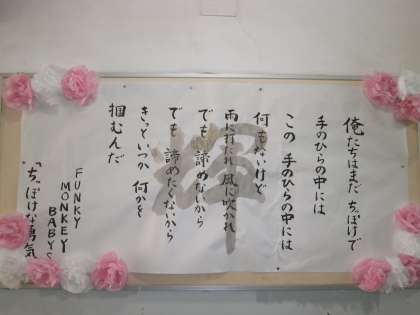 俺たちはまだ ちっぽけで
手のひらの中には
この 手のひらの中には
何もないけど
雨に打たれ 風に吹かれ
でも 諦めないから
でも 諦めたくないから
きっといつか 何かを
掴むんだ
FUNKY
MONKEY
BABYS
「ちっぽけな勇気